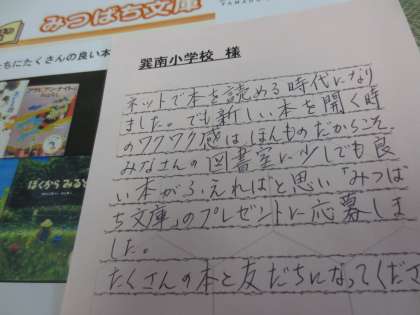 みつばち文庫
ちにたくさんの良い本
アラビアン・ナイト
ぼくからみると
巽南小学校 様
ネットで本を読める時代になり
ました。でも新しい本を開く時
のワクワク感はほんものだからこそ、
みなさんの図書室に少しでも良
い本がふえればと思い「みつば
ち文庫」のプレゼントに応募しま
した。
たくさんの本と友だちになってくださ